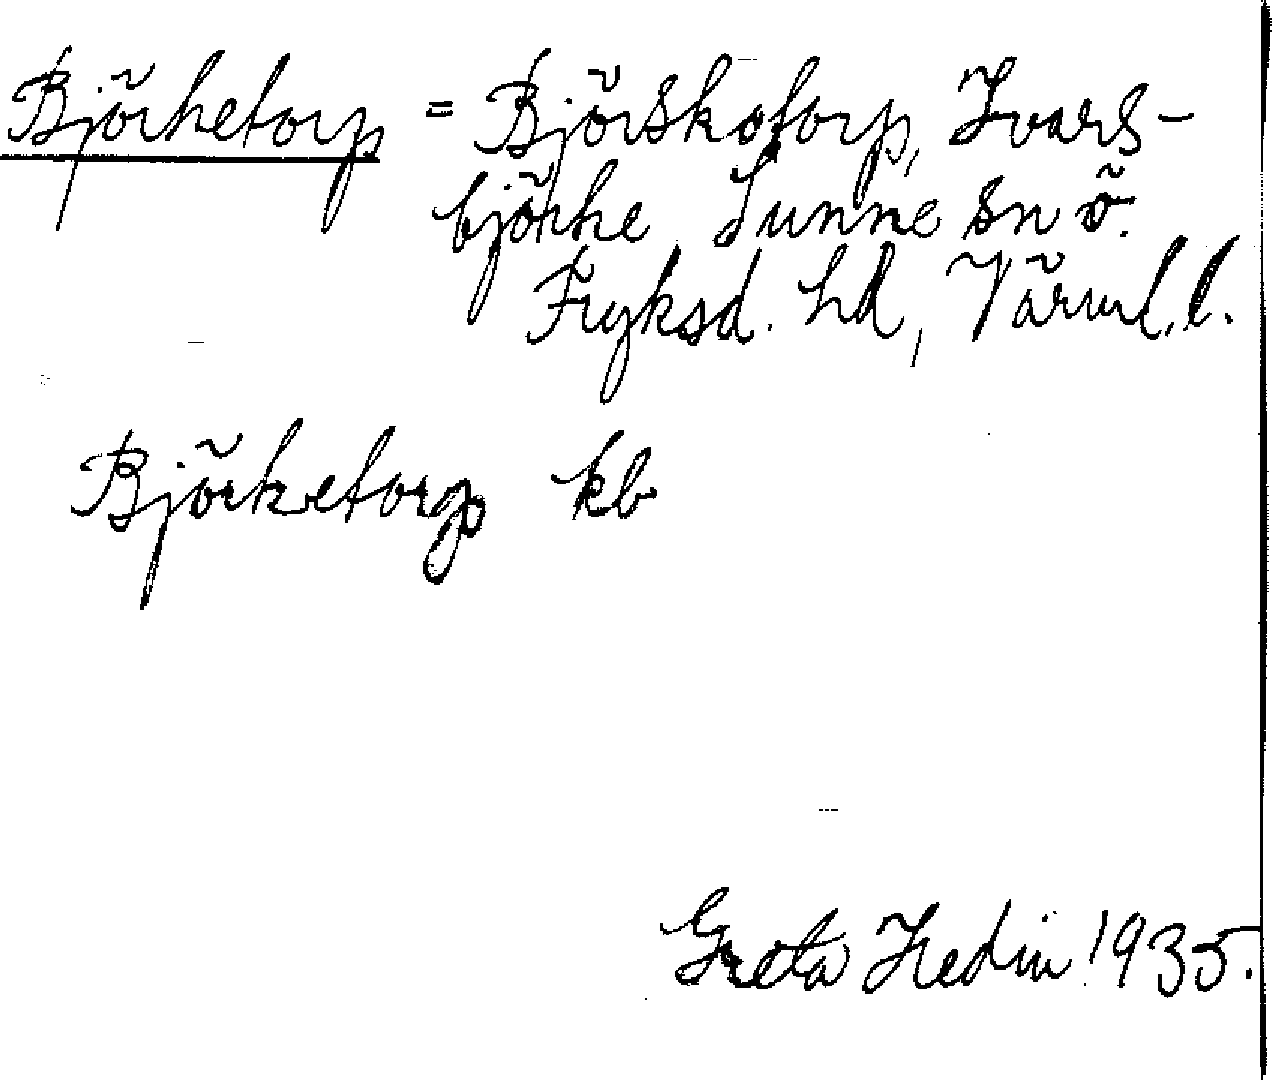 Björketorp = Björskotorp, Ivars-
björke Sunne sn ö.
Fryksd. hd, Värml. l.
Björketorp kb
Greta Hedin 1935.